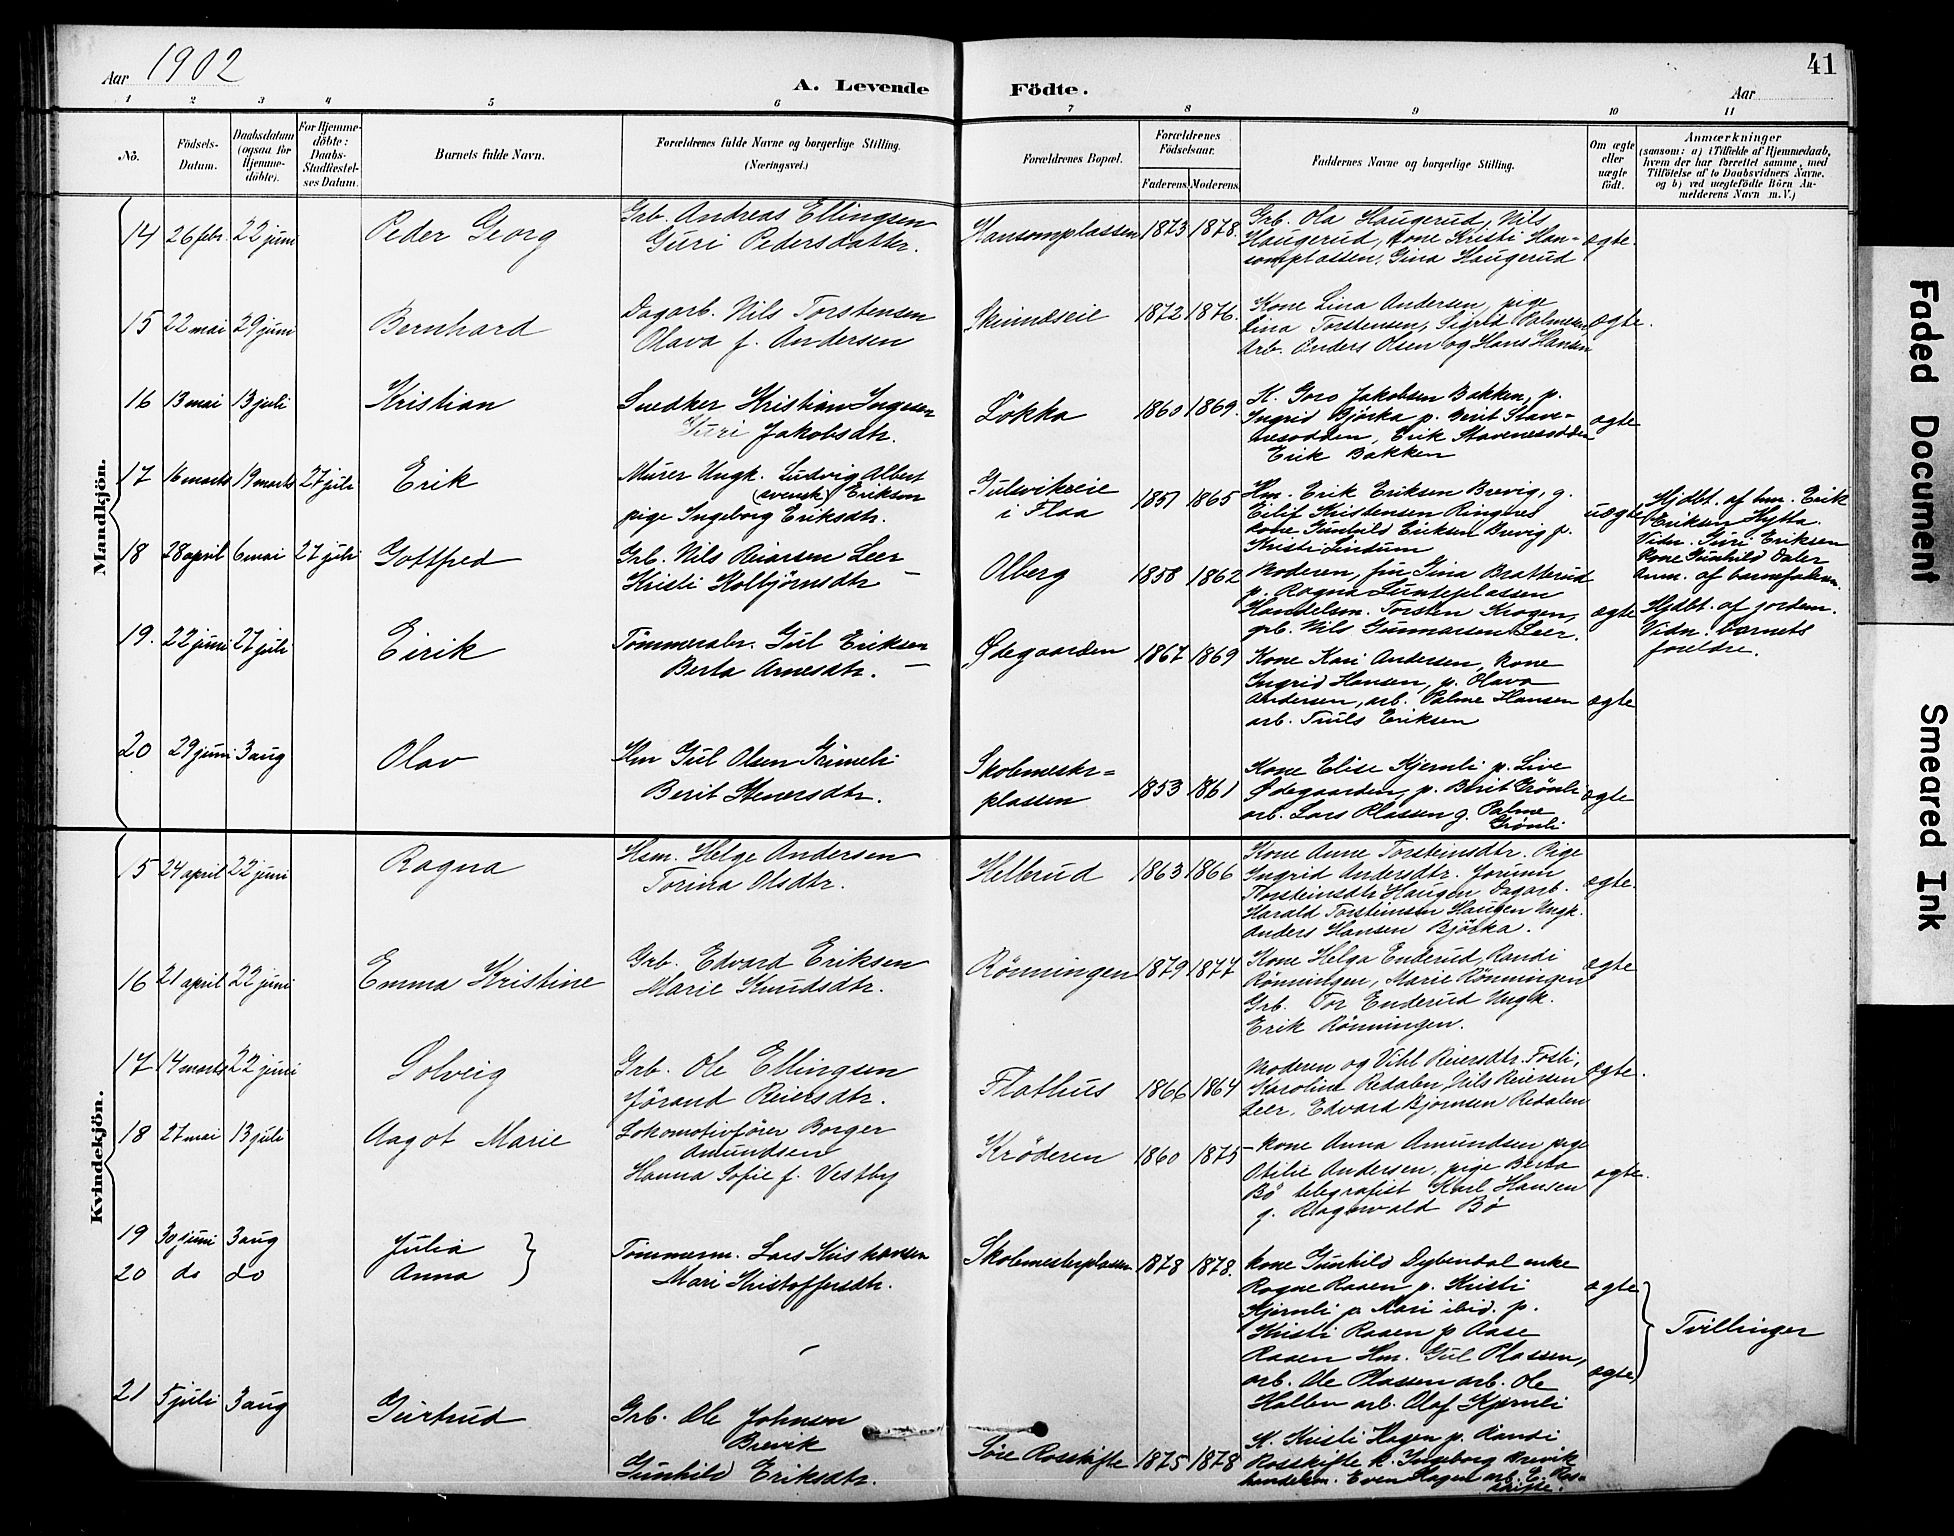 Aar 1902
A. Levende Födte.
Aar
41
1 2 3 4 5 6 7 8 9 10 11
No.
Födsels-Datum.
Daabsdatum (ogsaa for Hjemme-döbte).
For Hjemme-döbte: Daabs-Stadfæstel-ses Datum.
Barnets fulde Navn.
Forældrenes fulde Navne og borgerlige Stilling. (Næringsvei.)
Forældrenes Bopæl.
Forældrenes Födselsaar.
Faderens. Moderens.
Faddernes Navne og borgerlige Stilling.
Om ægte eller uægte födt.
Anmærkninger
(saasom: a) i Tilfælde af Hjemmedaab,
hvem der har forrettet samme, med
Tilföielse af to Daabsvidners Navne.
og b) ved uægtefödte Börn An-
melderens Navn m. V.)
Mandkjön.
14 26 febr. 22 juni Peder Georg
Grb. Andreas Ellingsen
Guri Pedersdattr.
Hansomplassen 1873 1878.
Grb. Ola Haugerud, Nils
Haugerud, kone Kristi Han-
somplassen, Gina Haugerud
ægte.
15 22 mai 29 juni Bernhard
Dagarb. Nils Torstensen
Olava f. Andersen
Skinnseie 1872 1876.
Kone Lina Andersen, pige
Lina Torstensen, Sigrid Palmesen
Arb. Anders Olsen og Hans Hansen
ægte.
16 13 mai 13 juli Kristian
Snedker Kristian Ingesen
Guri Jakobsdtr.
Lökka 1860 1869.
K. Goro Jakobsen Bakken, p.
Ingrid Björka p. Berit Stave-
nesodden, Erik Stavenesodden
Erik Bakken
ægte
17 16 marts 19 marts 27 juli Erik
Murer Ungk. Ludvig Albert
(svensk) Erikson
pige Ingeborg Eriksdtr.
Gulsvikeie
i Flaa
1851 1865
Hm. Erik Eriksen Brevig, g.
Eilif Kristensen Ringnes
kone Gunhild Eriksen Brevig p.
Kristi Lindum
uægte
Hjdbt. af hm. Erik
Eriksen Hytta.
Vidn. Guri Eriksen
kone Gunhild Daler
Anm. af barnefaderen.
18 28 april 6 mai 27 juli Gottfred
Grb. Nils Reiarsen Leer
Kristi Kolbjörnsdtr
Olberg 1858 1862
Moderen, frn Gina Bratterud
p. Ragna Lunseplassen
Handelsm. Torsten Krogen,
grb. Nils Gunnarsen Leer.
ægte
Hjdbt. af jordem.
Vidn. barnets
foreldre.
19. 22 juni 27 juli Eirik
Tömmerabr. Gul Eriksen
Berta Arnesdtr.
Ødegaarden 1867 1869
Kone Kari Andersen, kone
Ingrid Hansen, p. Olava
Andersen, arb. Palme Hansen
arb. Truls Eriksen
ægte
20 29 juni 3 aug Olav
Hm Gul Olsen Grimeli
Berit Stenersdtr.
Skolmestr-
plassen
1853 1861
Kone Elise Kjernli p. Live
Ødegaarden, p. Berit Grönli
arb. Lars Plassen g. Palme
Grönli
ægte
Kvindekjön.
15 24 april 22 juni Ragna
Hsm. Helge Andersen
Torina Olsdtr.
Helbrud 1863 1866
Kone Anne Torsteinsdtr. Pige
Ingrid Andersdtr. Jorunn
Thorsteinsdtr Haugen Dagarb.
Harald Torsteinsen Haugen Ungk.
Anders Hansen Björka.
ægte.
16 21 april 22 juni Emma Kristine
Grb. Edvard Eriksen
Marie Knudsdtr.
Rönningen 1879 1877
Kone Helga Enderud, Randi
Rönningen, Marie Rönningen
Grb. Tor Enderud Ungk.
Erik Rönningen.
ægte
17 14 marts 22 juni Solveig
Grb. Ole Ellingsen
Jörand Reiersdtr.
Flathus 1866 1864
Moderen og Vibl. Reiersdtr. Fosli,
Karoline Redalen, Nils Reiersen
Leer, Edvard Bjornsen Redalen
ægte.
18 27 mai 13 juli Aagot Marie
Lokomotivförer Borger
Amundsen
Hanna Sofie f. Vestby
Kröderen 1860 1875
kone Anna Amundsen pige
Otilie Andersen, pige Berta
Bö telegrafist Karl Hansen
g. Ragnvald Bö
ægte.
19 30 juni 3 aug Julia
20 do do Anna
Tömmerm. Lars Kristiansen
Mari Kristoffersdtr.
Skolmesterplassen 1878 1878.
kone Gunhild Dybendal enke
Rogne Raaen p. Kristi
Kjernli p. Mari ibid. p.
Kristi Raaen p Aase
Raaen Hm. Gul Plassen,
arb. Ole Plassen arb. Ole
Hallen arb. Olaf Kjernli
ægte
ægte
Tvillinger
21 5 juli 3 aug Gurtrud
Grb. Ole Johnsen
Brevik
Gunhild Eriksdtr.
Söre Rosskifte 1875 1878
K. Kristi Hagen p. Randi
Rosskifte k. Ingeborg Brevik
handelsm. Even Hagen arb. E. Ros-
skifte.
Faded Document
Smeared Ink